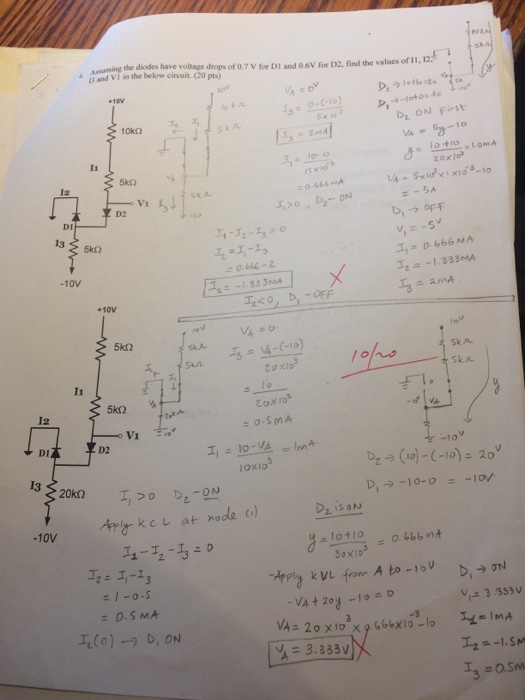 Assuming the diodes have voltage drops of 0.7 V for D1 and 0.6V for D2, find the values of I1, I2,
I3 and V1 in the below circuit. (20 pts)
+10V
10kΩ
I1
5kΩ
I2
V1
D2
D1
I3
5kΩ
-10V
VA = 0V
I3 = 0-(-10)
5x10³
I3 = 2mA
I1 = 10-0
15x10³
= 0.666MA
I1>0, D2-ON
I1-I2-I3=0
I2=I1-I3
= 0.666-2
I2 = -1.333MA
I2<0, D1-OFF
D2 ON First
VA = 5y-10
y = 10+10 = 1.0MA
20x10³
VA = 5x10³x1x10⁻³-10
= -5A
D1 → OFF
V1 = -5V
I1 = 0.666MA
I2 = -1.333MA
I3 = 2mA
+10V
5kΩ
I1
5kΩ
I2
V1
D1
D2
I3
20kΩ
-10V
VA = 0.
I3 = VA-(-10)
20x10³
= 10
20x10³
= 0.5mA
I1 = 10-VA = 1mA.
10x10³
I1>0 D2-ON
Apply KCL at node (1)
I1-I2-I3=0
I2 = I1-I3
= 1-0.5
= 0.5MA
I2(0) → D1 ON
10/20
10V
5kΩ
5kΩ
VA
-10V
y
D2 → (10)-(-10) = 20V
D1 → -10-0 = -10V
D2 is ON
y = 10+10 = 0.666mA
30x10³
-Apply KVL from A to -10V
-VA+20y-10=0
VA = 20x10³x0.666x10⁻³-10
VA = 3.333V
D1 → ON
V1 = 3.333V
I1=1MA
I2=-1.5M
I3=0.5m